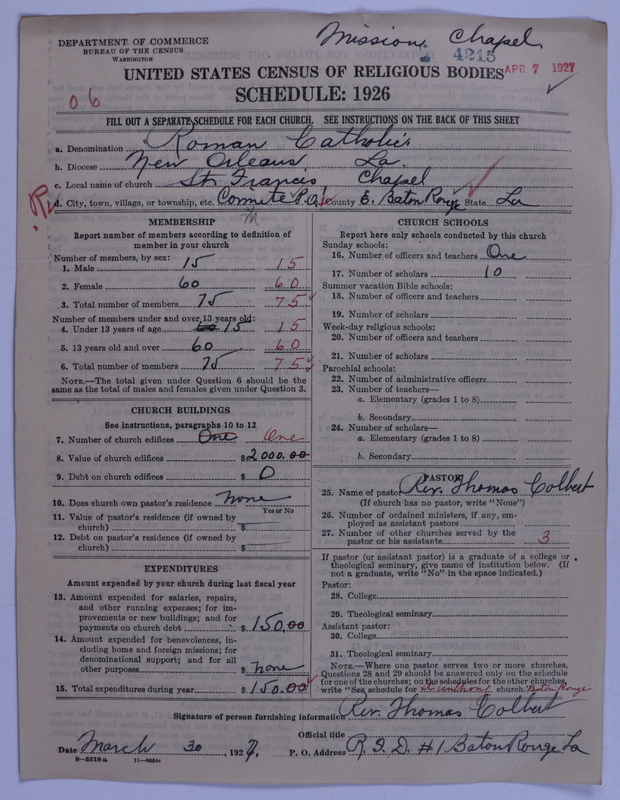 Mission Chapel
DEPARTMENT OF COMMERCE
BUREAU OF THE CENSUS
WASHINGTON
4215
APR 7 1927
UNITED STATES CENSUS OF RELIGIOUS BODIES
06
SCHEDULE: 1926
FILL OUT A SEPARATE SCHEDULE FOR EACH CHURCH. SEE INSTRUCTIONS ON THE BACK OF THIS SHEET
a. Denomination Roman Catholic
b. Diocese New Orleans La.
c. Local name of church St. Francis Chapel
d. City, town, village, or township, etc. Comite P.O. County E. Baton Rouge State La
MEMBERSHIP
Report number of members according to definition of member in your church
Number of members, by sex:
1. Male 15 15
2. Female 60 60
3. Total number of members 75 75
Number of members under and over 13 years old:
4. Under 13 years of age 15 15
5. 13 years old and over 60 60
6. Total number of members 75 75
NOTE.—The total given under Question 6 should be the same as the total of males and females given under Question 3.
CHURCH BUILDINGS
See instructions, paragraphs 10 to 12
7. Number of church edifices One One
8. Value of church edifices $2000.00
9. Debt on church edifices $ 0
10. Does church own pastor's residence none
Yes or No
11. Value of pastor's residence (if owned by church) $
12. Debt on pastor's residence (if owned by church) $
EXPENDITURES
Amount expended by your church during last fiscal year
13. Amount expended for salaries, repairs, and other running expenses; for improvements or new buildings; and for payments on church debt $150.00
14. Amount expended for benevolences, including home and foreign missions; for denominational support; and for all other purposes $ none
15. Total expenditures during year $150.00
CHURCH SCHOOLS
Report here only schools conducted by this church
Sunday schools:
16. Number of officers and teachers One
17. Number of scholars 10
Summer vacation Bible schools:
18. Number of officers and teachers
19. Number of scholars
Week-day religious schools:
20. Number of officers and teachers
21. Number of scholars
Parochial schools:
22. Number of administrative officers
23. Number of teachers—
a. Elementary (grades 1 to 8)
b. Secondary
24. Number of scholars—
a. Elementary (grades 1 to 8)
b. Secondary
PASTOR
25. Name of pastor Rev. Thomas Colbert
(If church has no pastor, write "None")
26. Number of ordained ministers, if any, employed as assistant pastors
27. Number of other churches served by the pastor or his assistants 3
If pastor (or assistant pastor) is a graduate of a college or theological seminary, give name of institution below. (If not a graduate, write "No" in the space indicated.)
Pastor:
28. College
29. Theological seminary
Assistant pastor:
30. College
31. Theological seminary
NOTE.—Where one pastor serves two or more churches, Questions 28 and 29 should be answered only on the schedule for one of the churches; on the schedules for the other churches, write "See schedule for St. Anthony church. Baton Rouge
Signature of person furnishing information Rev. Thomas Colbert
Official title
Date March 30, 1927.
P. O. Address R.F.D. #1 Baton Rouge La
8—5518 a 11—9034